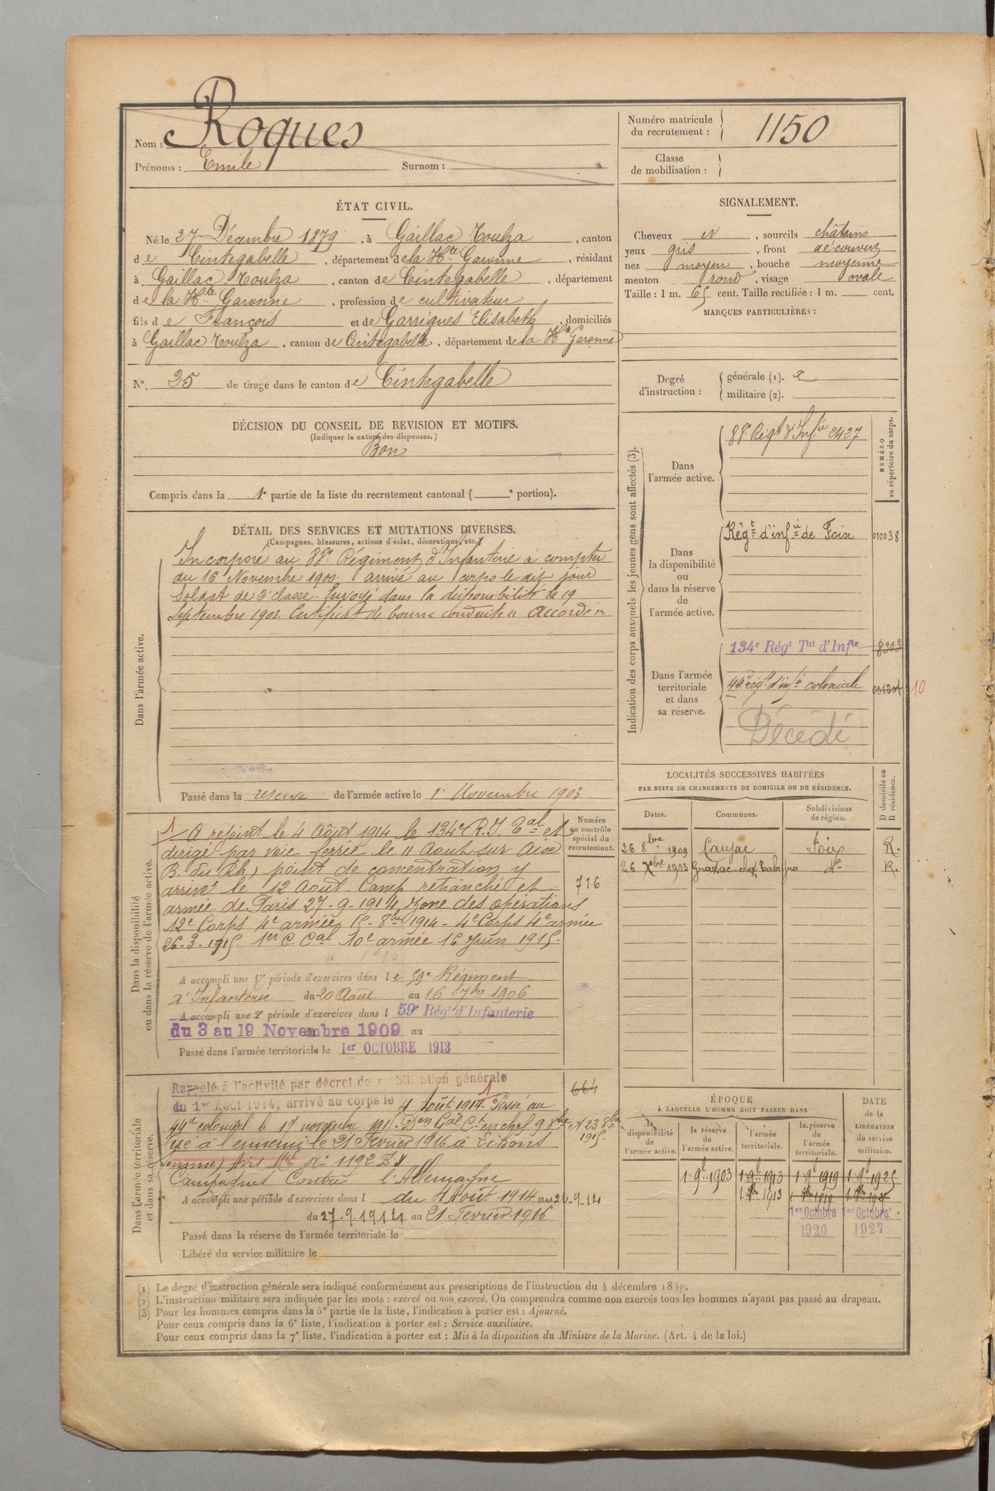 Nom : Roques
Prénoms : Emile Surnom :
Numéro matricule du recrutement : 1150
Classe de mobilisation :
ÉTAT CIVIL.
Né le 27 Décembre 1879, à Gaillac Toulza, canton
de Cintegabelle, département de la Hte Garonne, résidant
à Gaillac Toulza, canton de Cintegabelle, département
de la Hte Garonne, profession de cultivateur
fils de François et de Garrigues Elisabeth, domiciliés
à Gaillac Toulza, canton de Cintegabelle, département de la Hte Garonne
N° 25 de tirage dans le canton de Cintegabelle
SIGNALEMENT.
Cheveux et, sourcils châtains
yeux gris, front découvert
nez moyen, bouche moyenne
menton rond, visage ovale
Taille : 1 m. 65 cent. Taille rectifiée : 1 m. cent.
MARQUES PARTICULIÈRES :
Degré d'instruction : générale (1). 2
militaire (2).
DÉCISION DU CONSEIL DE REVISION ET MOTIFS.
(Indiquer la nature des dispenses.)
Bon
Compris dans la 1e partie de la liste du recrutement cantonal ( e portion).
DÉTAIL DES SERVICES ET MUTATIONS DIVERSES.
(Campagnes, blessures, actions d'éclat, décorations, etc.)
Dans l'armée active.
Incorporé au 88e Régiment d'Infanterie à compter
du 16 Novembre 1900. arrivé au corps le dit jour
Soldat de 2e classe. Envoyé dans la disponibilité le 19
Septembre 1903 Certificat de bonne conduite "Accordé"
Passé dans la réserve de l'armée active le 1er Novembre 1903
Indication des corps auxquels les jeunes gens sont affectés (3).
NUMÉRO au répertoire du corps.
Dans l'armée active.
88e Régt d'Infie 2427
Dans la disponibilité ou dans la réserve de l'armée active.
Régt d'infie de Foix 01003 8
Dans l'armée territoriale et dans sa réserve.
134e Régt Tal d'Infie 8303
44e rég. d'infie coloniale
10
Décédé
Dans la disponibilité ou dans la réserve de l'armée active.
Numéro au contrôle spécial du recrutement.
716
A rejoint le 4 Août 1914 le 134e R.I. Tal et
dirigé par voie ferrée le 11 Août sur Aix
(B. du Rh.) point de concentration y
arrivé le 12 Août Camp retranché et
armée de Paris 27-9-1914 zone des opérations
12e Corps 4e armée 15-8bre 1914 - 4e Corps 4e armée
26-3-1915 1er C. Cal 10e armée 16 Juin 1915
A accompli une 1re période d'exercices dans le 59e Régiment
d'Infanterie du 20 Août au 16 7bre 1906
A accompli une 2e période d'exercices dans l 59e Rég. d'Infanterie
du 3 au 19 Novembre 1909 au
Passé dans l'armée territoriale le 1er OCTOBRE 1913
LOCALITÉS SUCCESSIVES HABITÉES
PAR SUITE DE CHANGEMENTS DE DOMICILE OU DE RÉSIDENCE.
Dates. Communes. Subdivisions de région. D domicile ou R résidence.
26 8bre 1909 Caujac Foix R.
26 Xbre 1913 Grazac Do R.
Dans l'armée territoriale et dans sa réserve.
Rappelé à l'activité par décret de mobilisation générale 664
du 1er Août 1914, arrivé au corps le 4 Août 1914. Passé au
44e colonial le 1er novembre 1915
Tué à l'ennemi le 21 Février 1916 à Lihons
(Somme) Avis Mel N° 1192
Campagnes Contre l'Allemagne
A accompli une période d'exercices dans l du 4 Août 1914 au 26.9.14
du 27.9.1914 au 21 Février 1916
Passé dans la réserve de l'armée territoriale le
Libéré du service militaire le
ÉPOQUE
À LAQUELLE L'HOMME DOIT PASSER DANS
la disponibilité de l'armée active. la réserve de l'armée active. l'armée territoriale. la réserve de l'armée territoriale. DATE de la LIBÉRATION du service militaire.
1 9bre 1903 1 9bre 1913 1 9bre 1919 1 9bre 1925
1er Octobre 1920 1er Octobre 1927
(1) Le degré d'instruction générale sera indiqué conformément aux prescriptions de l'instruction du 4 décembre 1889.
(2) L'instruction militaire sera indiquée par les mots : exercé ou non exercé. On comprendra comme non exercés tous les hommes n'ayant pas passé au drapeau.
(3) Pour les hommes compris dans la 5e partie de la liste, l'indication à porter est : Ajourné.
Pour ceux compris dans la 6e liste, l'indication à porter est : Service auxiliaire.
Pour ceux compris dans la 7e liste, l'indication à porter est : Mis à la disposition du Ministre de la Marine. (Art. 4 de la loi.)